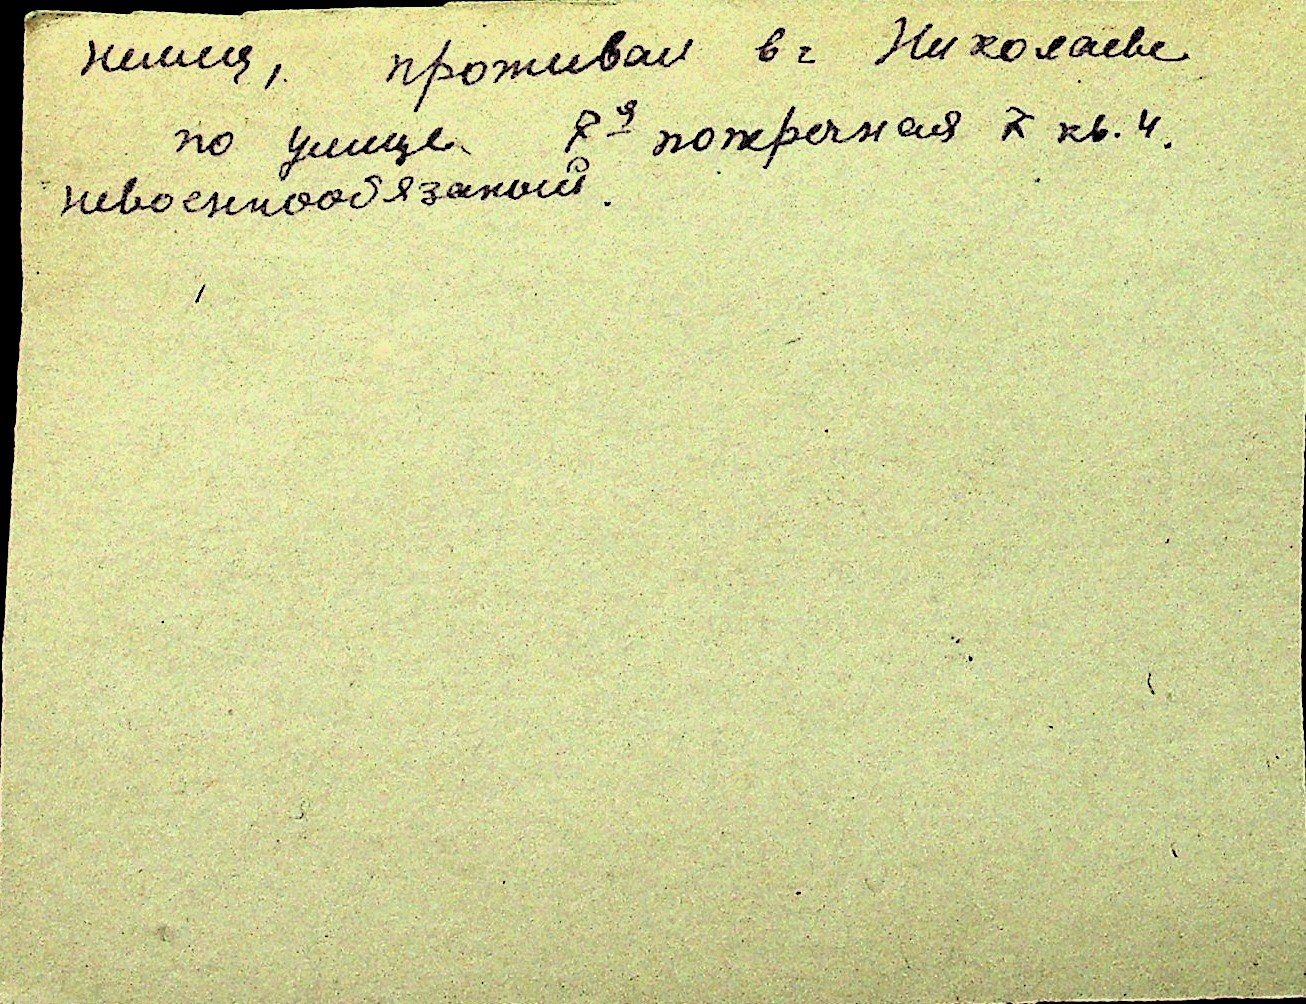 немец, проживал в г Николаеве
по улице 7я поперечная 7 кв. 4.
невоеннообязаный.